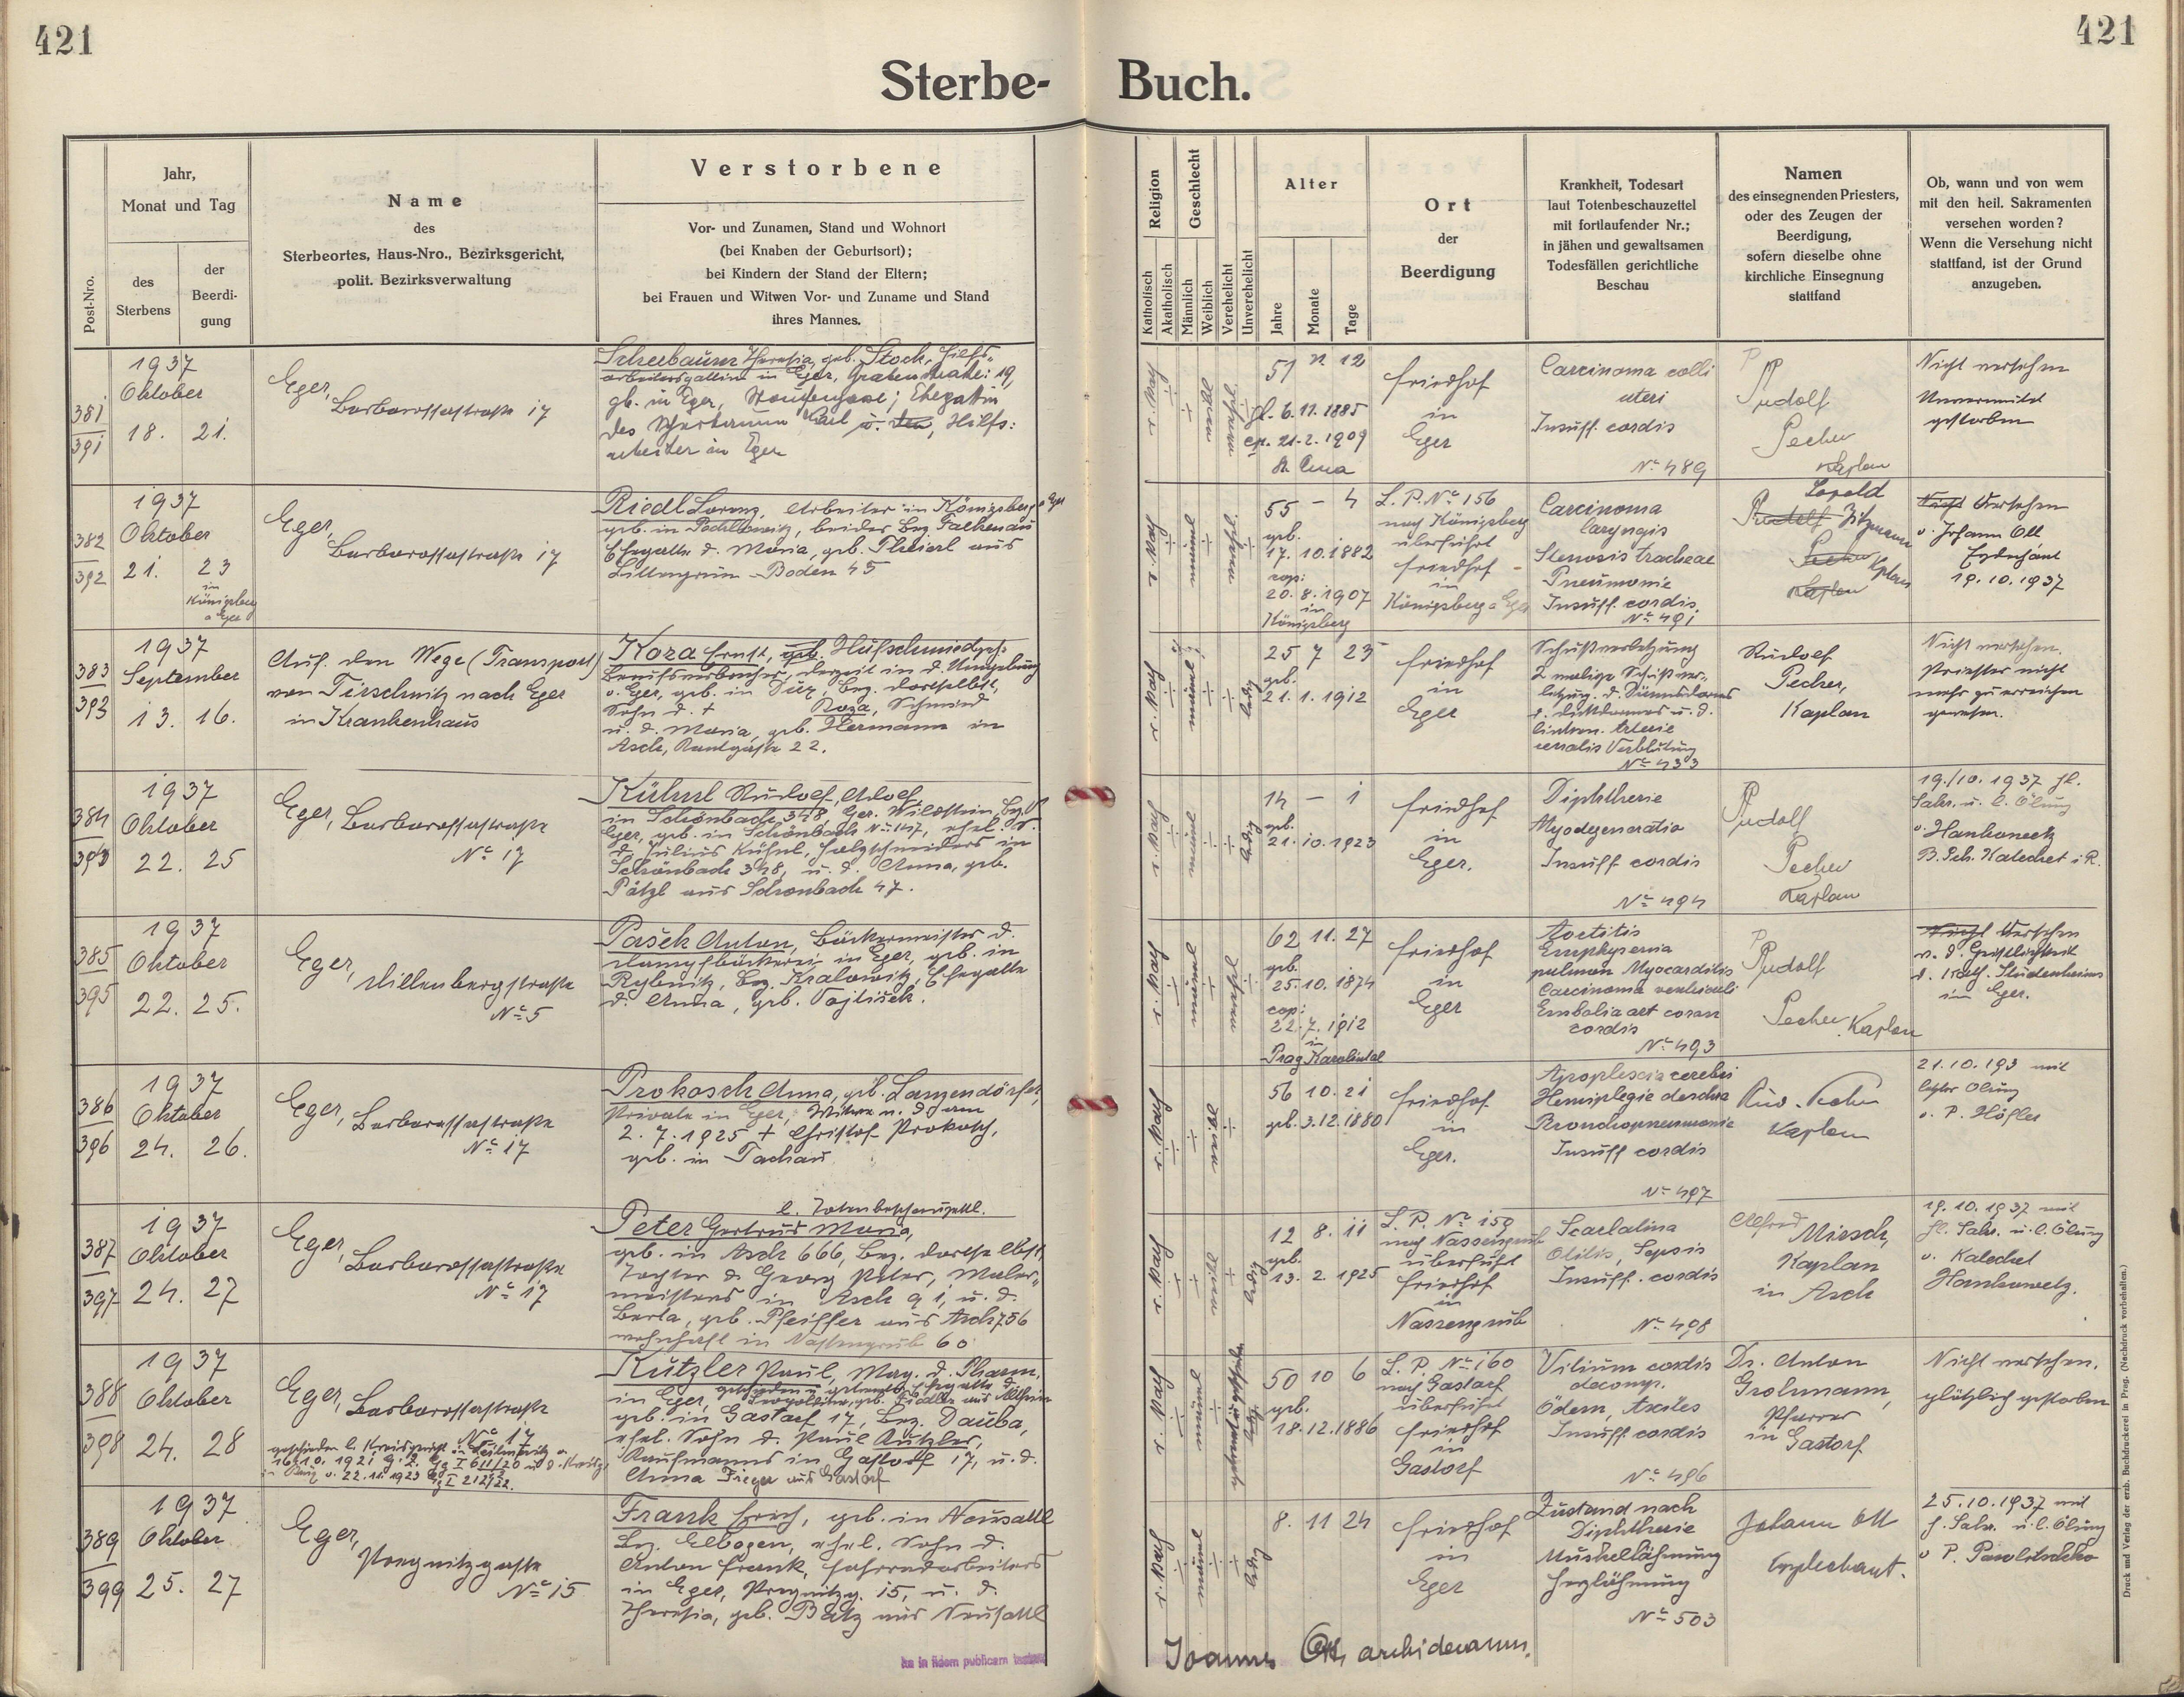 421
421
Sterbe- Buch.
Post-Nro.
Jahr,
Monat und Tag
des
Sterbens
der
Beerdi-
gung
Name
des
Sterbeortes, Haus-Nro., Bezirksgericht,
polit. Bezirksverwaltung
Verstorbene
Vor- und Zunamen, Stand und Wohnort
(bei Knaben der Geburtsort);
bei Kindern der Stand der Eltern;
bei Frauen und Witwen Vor- und Zuname und Stand
ihres Mannes.
Religion
Katholisch
Akatholisch
Geschlecht
Männlich
Weiblich
Verehelicht
Unverehelicht
Alter
Jahre
Monate
Tage
Ort
der
Beerdigung
Krankheit, Todesart
laut Totenbeschauzettel
mit fortlaufender Nr.;
in jähen und gewaltsamen
Todesfällen gerichtliche
Beschau
Namen
des einsegnenden Priesters,
oder des Zeugen der
Beerdigung,
sofern dieselbe ohne
kirchliche Einsegnung
stattfand
Ob, wann und von wem
mit den heil. Sakramenten
versehen worden?
Wenn die Versehung nicht
stattfand, ist der Grund
anzugeben.
381
391
1937
Oktober
18. 21.
Eger,
Barbarossastraße 17
Theresia, geb. Stock, Hilfs-
arbeitersgattin in Eger, 19,
gb. in Eger, Ehegattin
des Karl Hilfs:
arbeiter in Eger
r. kath
51 12
6. 11. 1885
21. 2. 1909
Friedhof
in
Eger
Carcinoma colli
uteri
Insuff. cordis
No 489
P. Rudolf
Pecher
Kaplan
Nicht versehen
Unvermutet
gestorben
382
392
1937
Oktober
21. 23
in
Königsberg
a Eger
Eger,
Barbarossastraße 17
Riedl Lorenz, Arbeiter in Königsberg a Eger
geb. in Pochlowitz, beides Bez. Falkenau
Ehegatte d. Maria, geb. aus
Boden 45
r. kath
55 – 4
geb.
17. 10. 1882
cop:
20. 8. 1907
in
Königsberg
L. P. No 156
nach Königsberg
überführt
Friedhof
in
Königsberg a Eger
Carcinoma
laryngis
Stenosis tracheae
Pneumonie
Insuff. cordis.
No 491
Leopold
Rudolf Zitzmann
Pecher Kaplan
Kaplan
Nicht Versehen
v. Johann Ott
Erzdechant
19. 10. 1937
383
393
1937
September
13. 16.
Auf dem Wege (Transport)
von Tirschnitz nach Eger
in Krankenhaus
Koza Ernst,
derzeit in d. Umgebung
v. Eger, geb. in Dux, Bez. dortselbst,
Sohn d. + Koza, Schmied
u. d. Maria, geb. Hermann in
Asch, 22.
r. kath
ledig
25 7 23
geb.
21. 1. 1912
Friedhof
in
Eger
Schußverletzung
2 malige Schußver-
letzung d. Dünndarmes
d. Dickdarmes u. d.
Arterie
Verblutung
No 433
Rudolf
Pecher,
Kaplan
Nicht versehen.
Priester nicht
mehr zu erreichen
gewesen.
384
1937
Oktober
22. 25
Eger, Barbarossastraße
No 17
Kühnl Rudolf, Adolf,
in Schönbach 348, Ger. Wildstein, Bez.
Eger, geb. in Schönbach No 147, ehel. S.
d. Julius Kühnl, Holzschneiders in
Schönbach 348, u. d. Anna, geb.
Pätzl aus Schönbach 47.
r. kath
ledig
14 – 1
geb.
21. 10. 1923
Friedhof
in
Eger.
Diphtherie
Myodegeneratio
Insuff cordis
No 494
P. Rudolf
Pecher
Kaplan
19./10. 1937 hl.
Sakr. u. l. Ölung
B. Sch. Katechet i. R.
385
395
1937
Oktober
22. 25.
Eger,
No 5
Pašek Anton, Bäckermeister d.
Dampfbäckerei in Eger, geb. in
Rybnitz, Bez. Kralowitz, Ehegatte
d. Anna, geb. Vojtišek.
r. kath
62 11. 27
geb.
25. 10. 1874
cop:
22. 7. 1912
in
Prag Karolintal
Friedhof
in
Eger
Aortitis
Emphysema
pulmon Myocarditis
Carcinoma ventriculi
Embolia art coron
cordis
No 493
P. Rudolf
Pecher, Kaplan
Nicht Versehen
v. d. Geistlichkeit
d. kath. Studenheims
in Eger.
386
396
1937
Oktober
24. 26.
Eger, Barbarossastraße
No 17
Prokosch Anna, geb. Langendörfer,
Private in Eger, Witwe n. d. am
2. 7. 1925 + Christof Prokosch,
geb. in Tachau
r. kath
56 10. 21
geb. 3. 12. 1880
Friedhof
in
Eger.
Apoplexia cerebri
Hemiplegie dextra
Bronchopneumonie
Insuff cordis
No 497
Rud. Pecher
Kaplan
21. 10. 193 mit
letzter Ölung
v. P. Höfler
387
397
1937
Oktober
24. 27
Eger,
Barbarossastraße
No 17
l. Totenbeschauzettl.
Peter Gertrud Maria,
geb. in Asch 666, Bez. dortselbst,
Tochter d. Georg Peter, Maler-
meisters in Asch 91, u. d.
Berta, geb. Pfeiffer aus Asch 756
wohnhaft in Nassengrub 60
r. kath
ledig
12 8. 11
geb.
13. 2. 1925
L. P. No 159
nach Nassengrub
überführt
Friedhof
in
Nassengrub
Scarlatina
Otitis, Sepsis
Insuff. cordis
No 498
Alfred Mirsch,
Kaplan
in Asch
19. 10. 1937 mit
hl. Sakr. u. l. Ölung
v. Katechet
388
398
1937
Oktober
24. 28
Eger, Barbarossastraße
No 17
geschieden l. Kreisgericht in Leitmeritz v.
Kutzler Paul, Mag. d. Pharm.
in Eger,
geb. in Gastorf 17, Bez. Dauba,
ehel. Sohn d. Paul Kutzler,
Kaufmanns in Gastorf 17, u. d.
Anna Fieger aus Gastorf
r. kath
50 10 6
geb.
18. 12. 1886
L. P. No 160
nach Gastorf
überführt
Friedhof
in
Gastorf
Vitium cordis
decomp.
Insuff cordis
No 496
Dr. Anton
Grohmann,
Pfarrer
in Gastorf
Nicht versehen.
plötzlich gestorben
389
399
1937
Oktober
25. 27
Eger,
No 15
Frank Erich, geb. in Neusattl
Bez. Elbogen, ehel. Sohn d.
Anton Frank, Fahrradarbeiters
in Eger, 15, u. d.
Theresia, geb. Bätz aus Neusattl
r. kath
ledig
8. 11 24
Friedhof
in
Eger
Zustand nach
Diphtherie
Muskellähmung
Herzlähmung
No 503
Johann Ott
Erzdechant.
25. 10. 1937 mit
h. Sakr. u. l. Ölung
v P.
Joannes Ott, archidecanus.
Druck und Verlag der erzb. Buchdruckerei in Prag. (Nachdruck vorbehalten.)